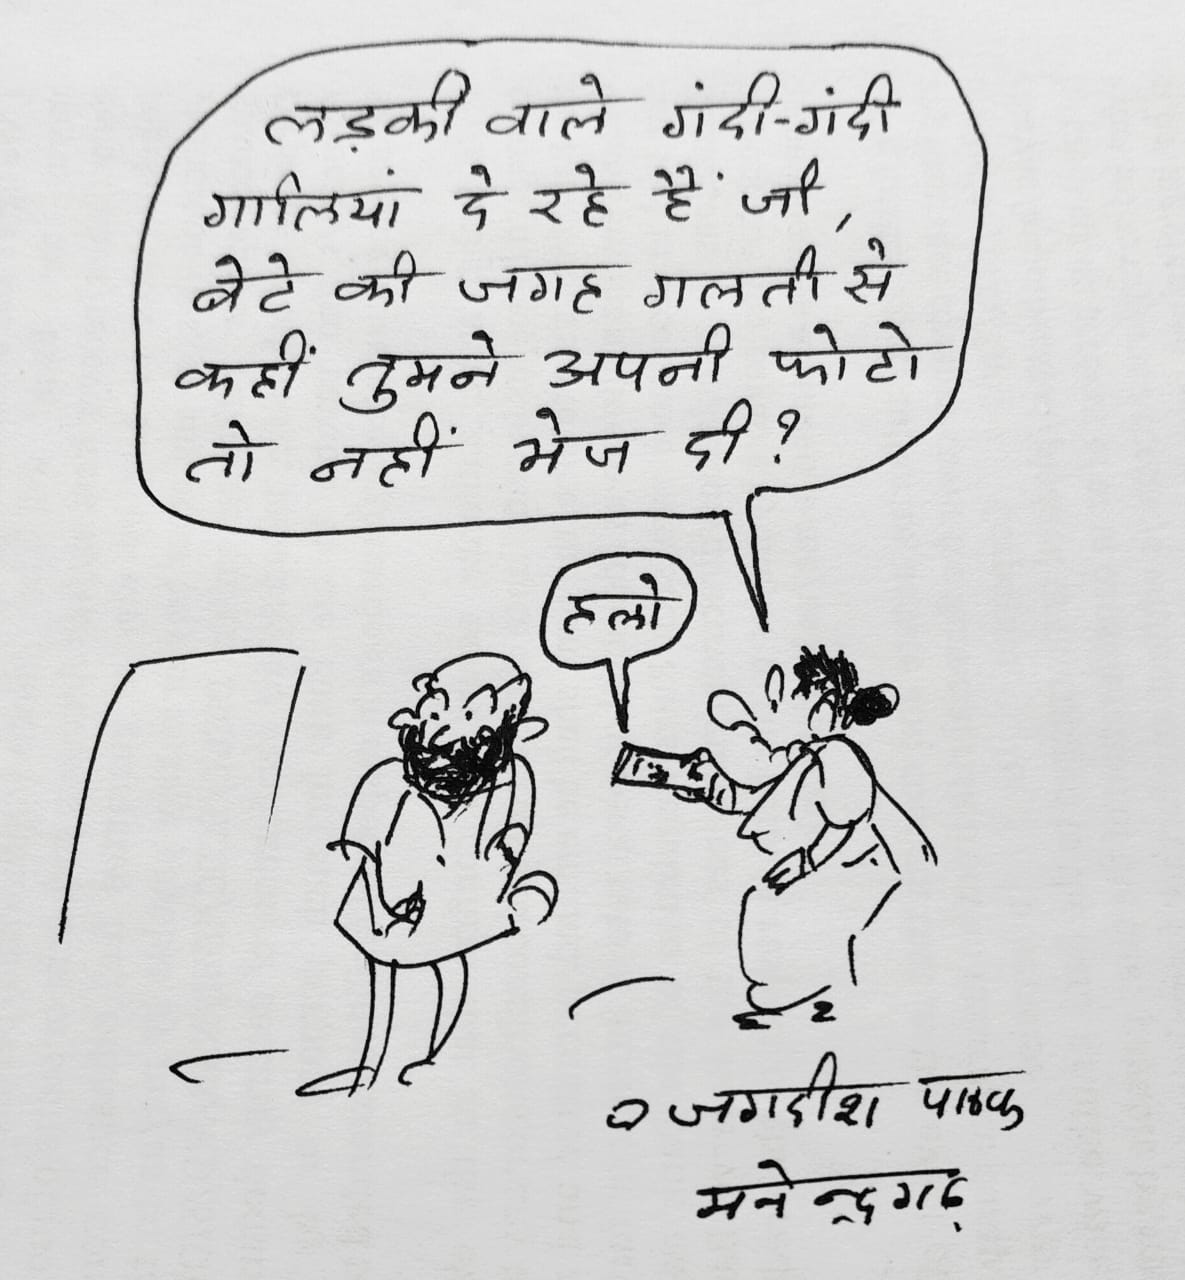 लड़की वाले गंदी-गंदी
गालियां दे रहे हैं जी,
बेटे की जगह गलती से
कहीं तुमने अपनी फोटो
तो नहीं भेज दी?
हलो
जगदीश पाठक
मनेन्द्रगढ़